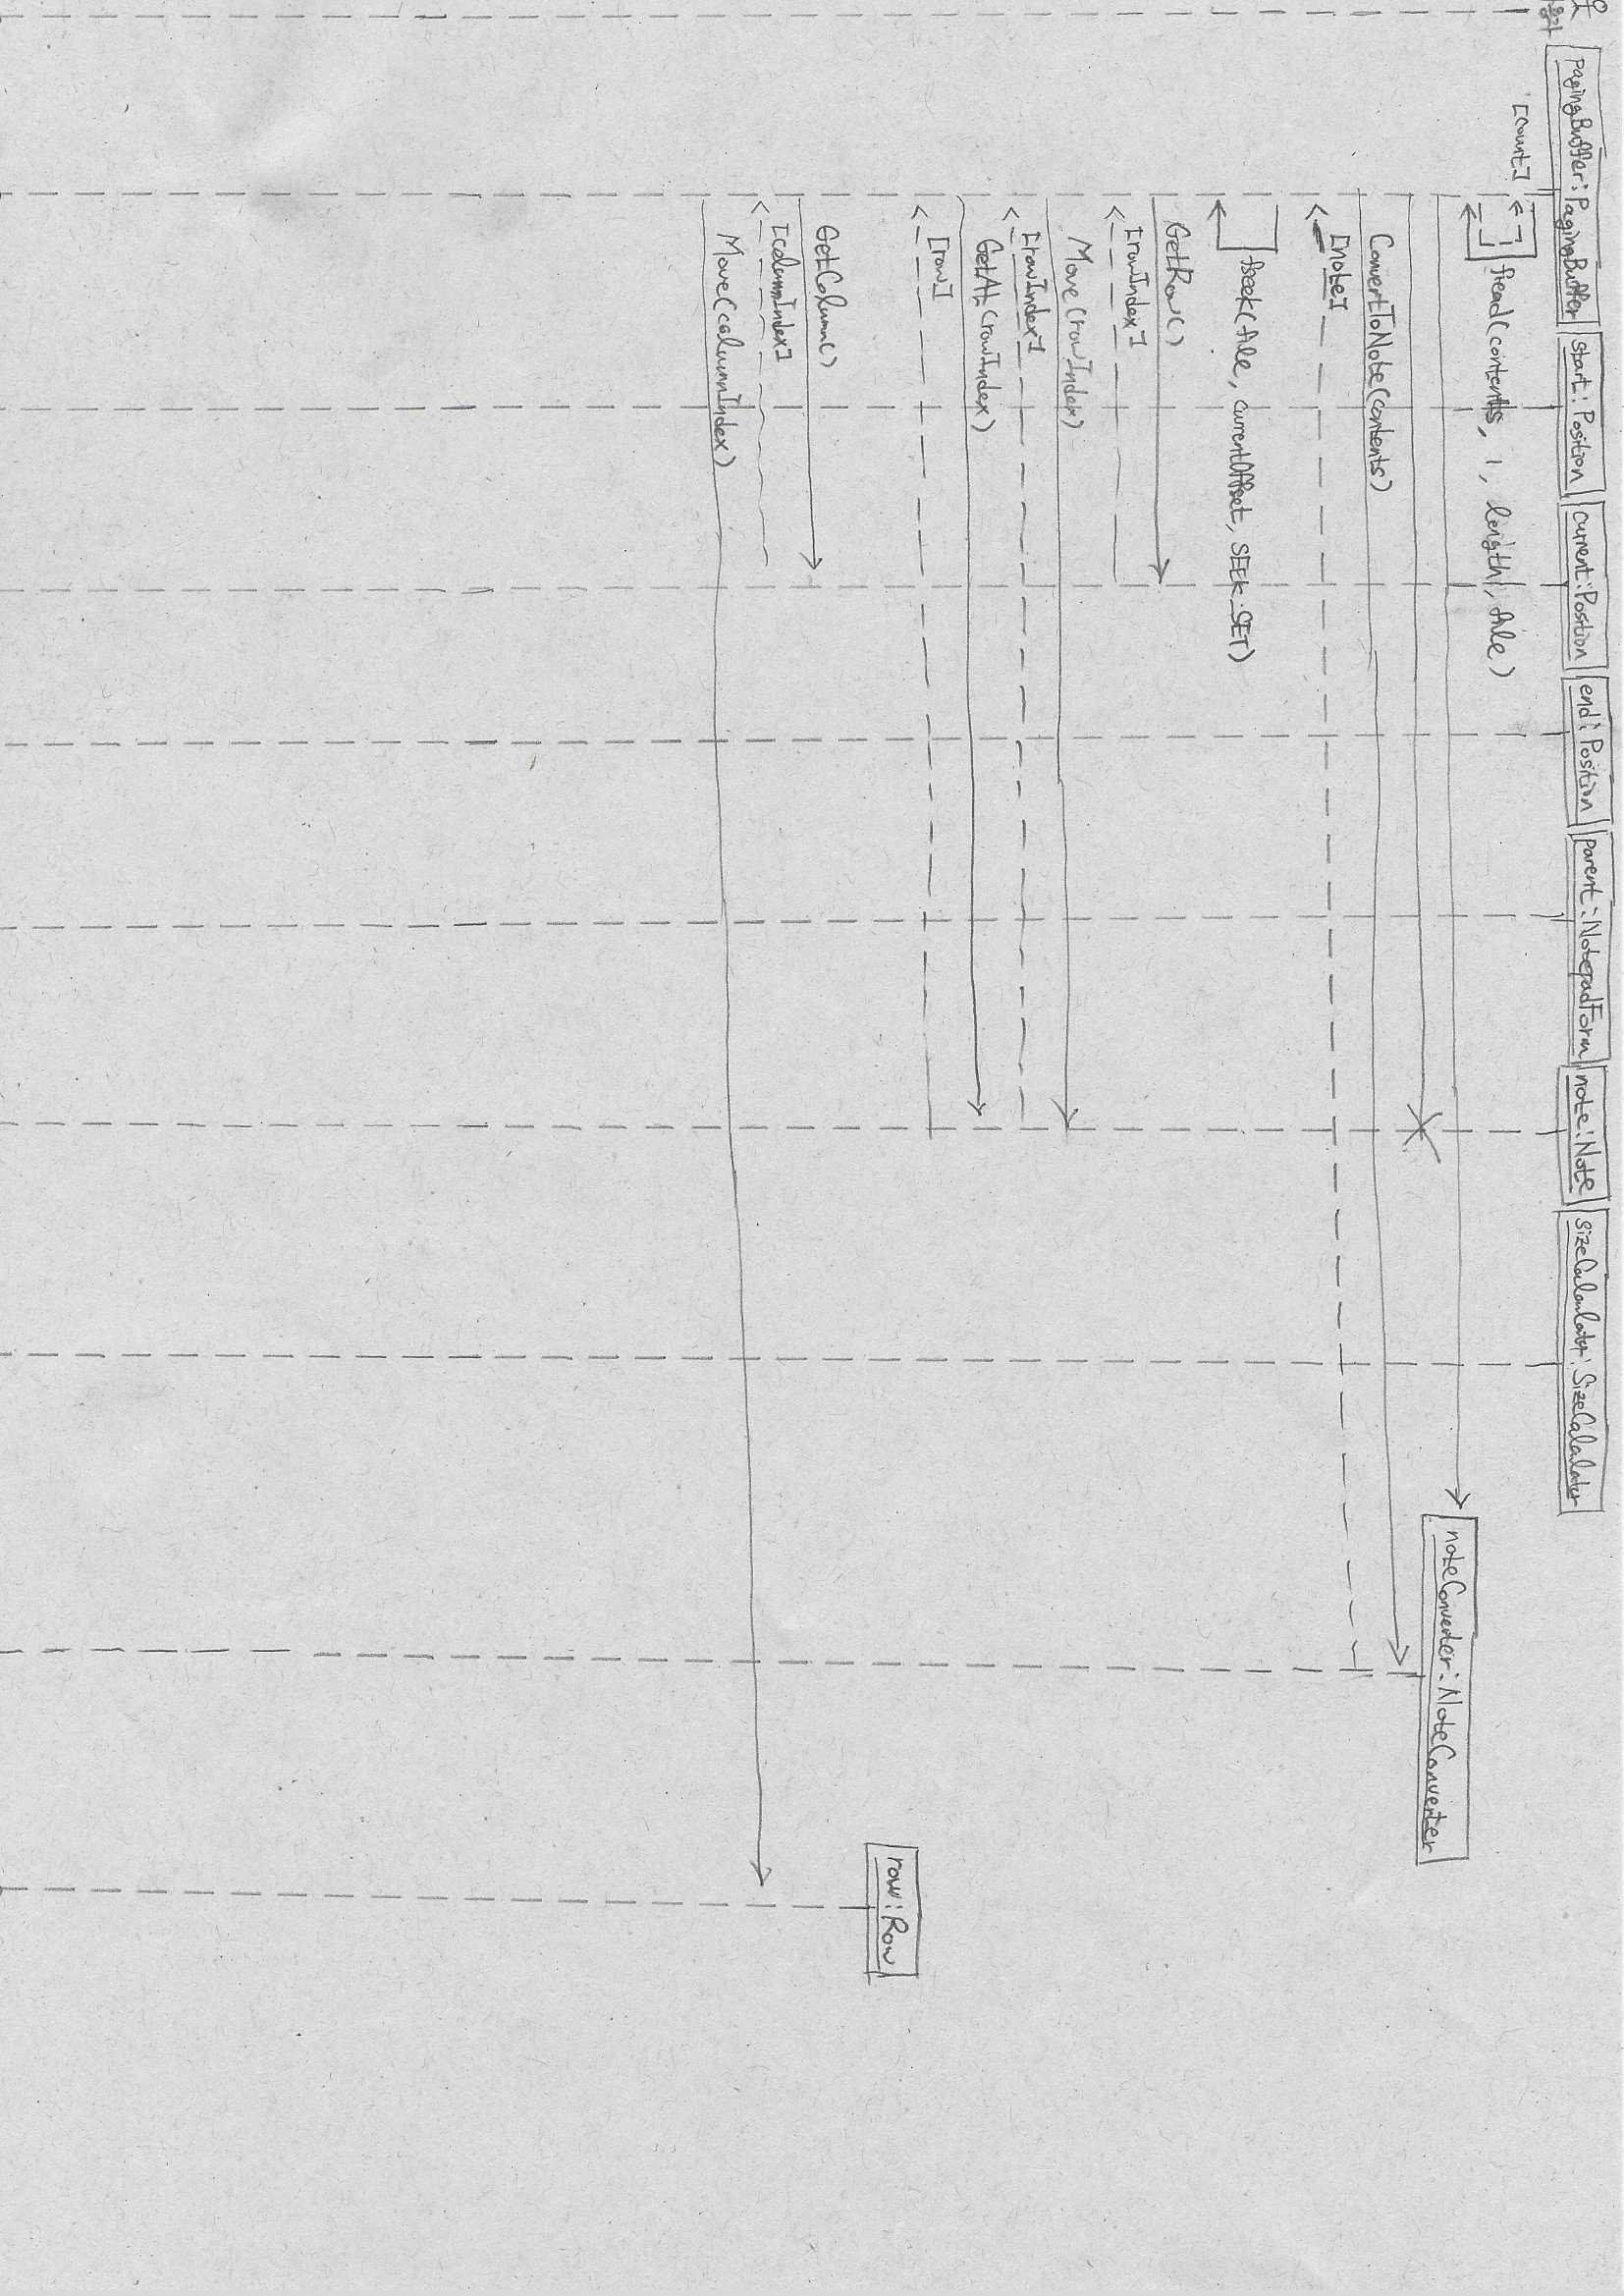 pagingBuffer:PagingBuffer
start:Position
current:Position
end:Position
parent:NotepadForm
note:Note
sizeCalculator:SizeCalculator
[count]
fread(contents, 1, length, file)
noteConverter:NoteConverter
ConvertToNote(contents)
[note]
fseek(file, currentOffset, SEEK_SET)
GetRow()
[rowIndex]
Move(rowIndex)
[rowIndex]
GetAt(rowIndex)
[row]
row:Row
GetColumn()
[columnIndex]
Move(columnIndex)